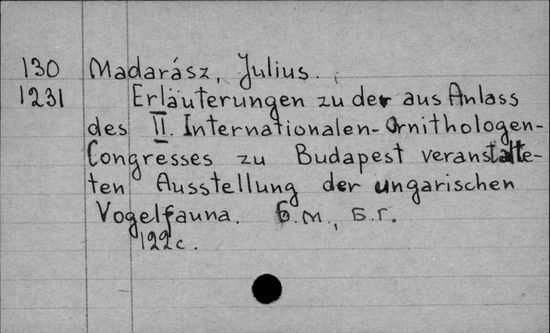 130 Madarász, Julius.
1231 Erläuterungen zu der aus Anlass
des II. Internationalen-Ornithologen-
Congresses zu Budapest veranstalte-
ten Ausstellung der ungarischen
Vogelfauna. Б.м., Б.г.
122 c.